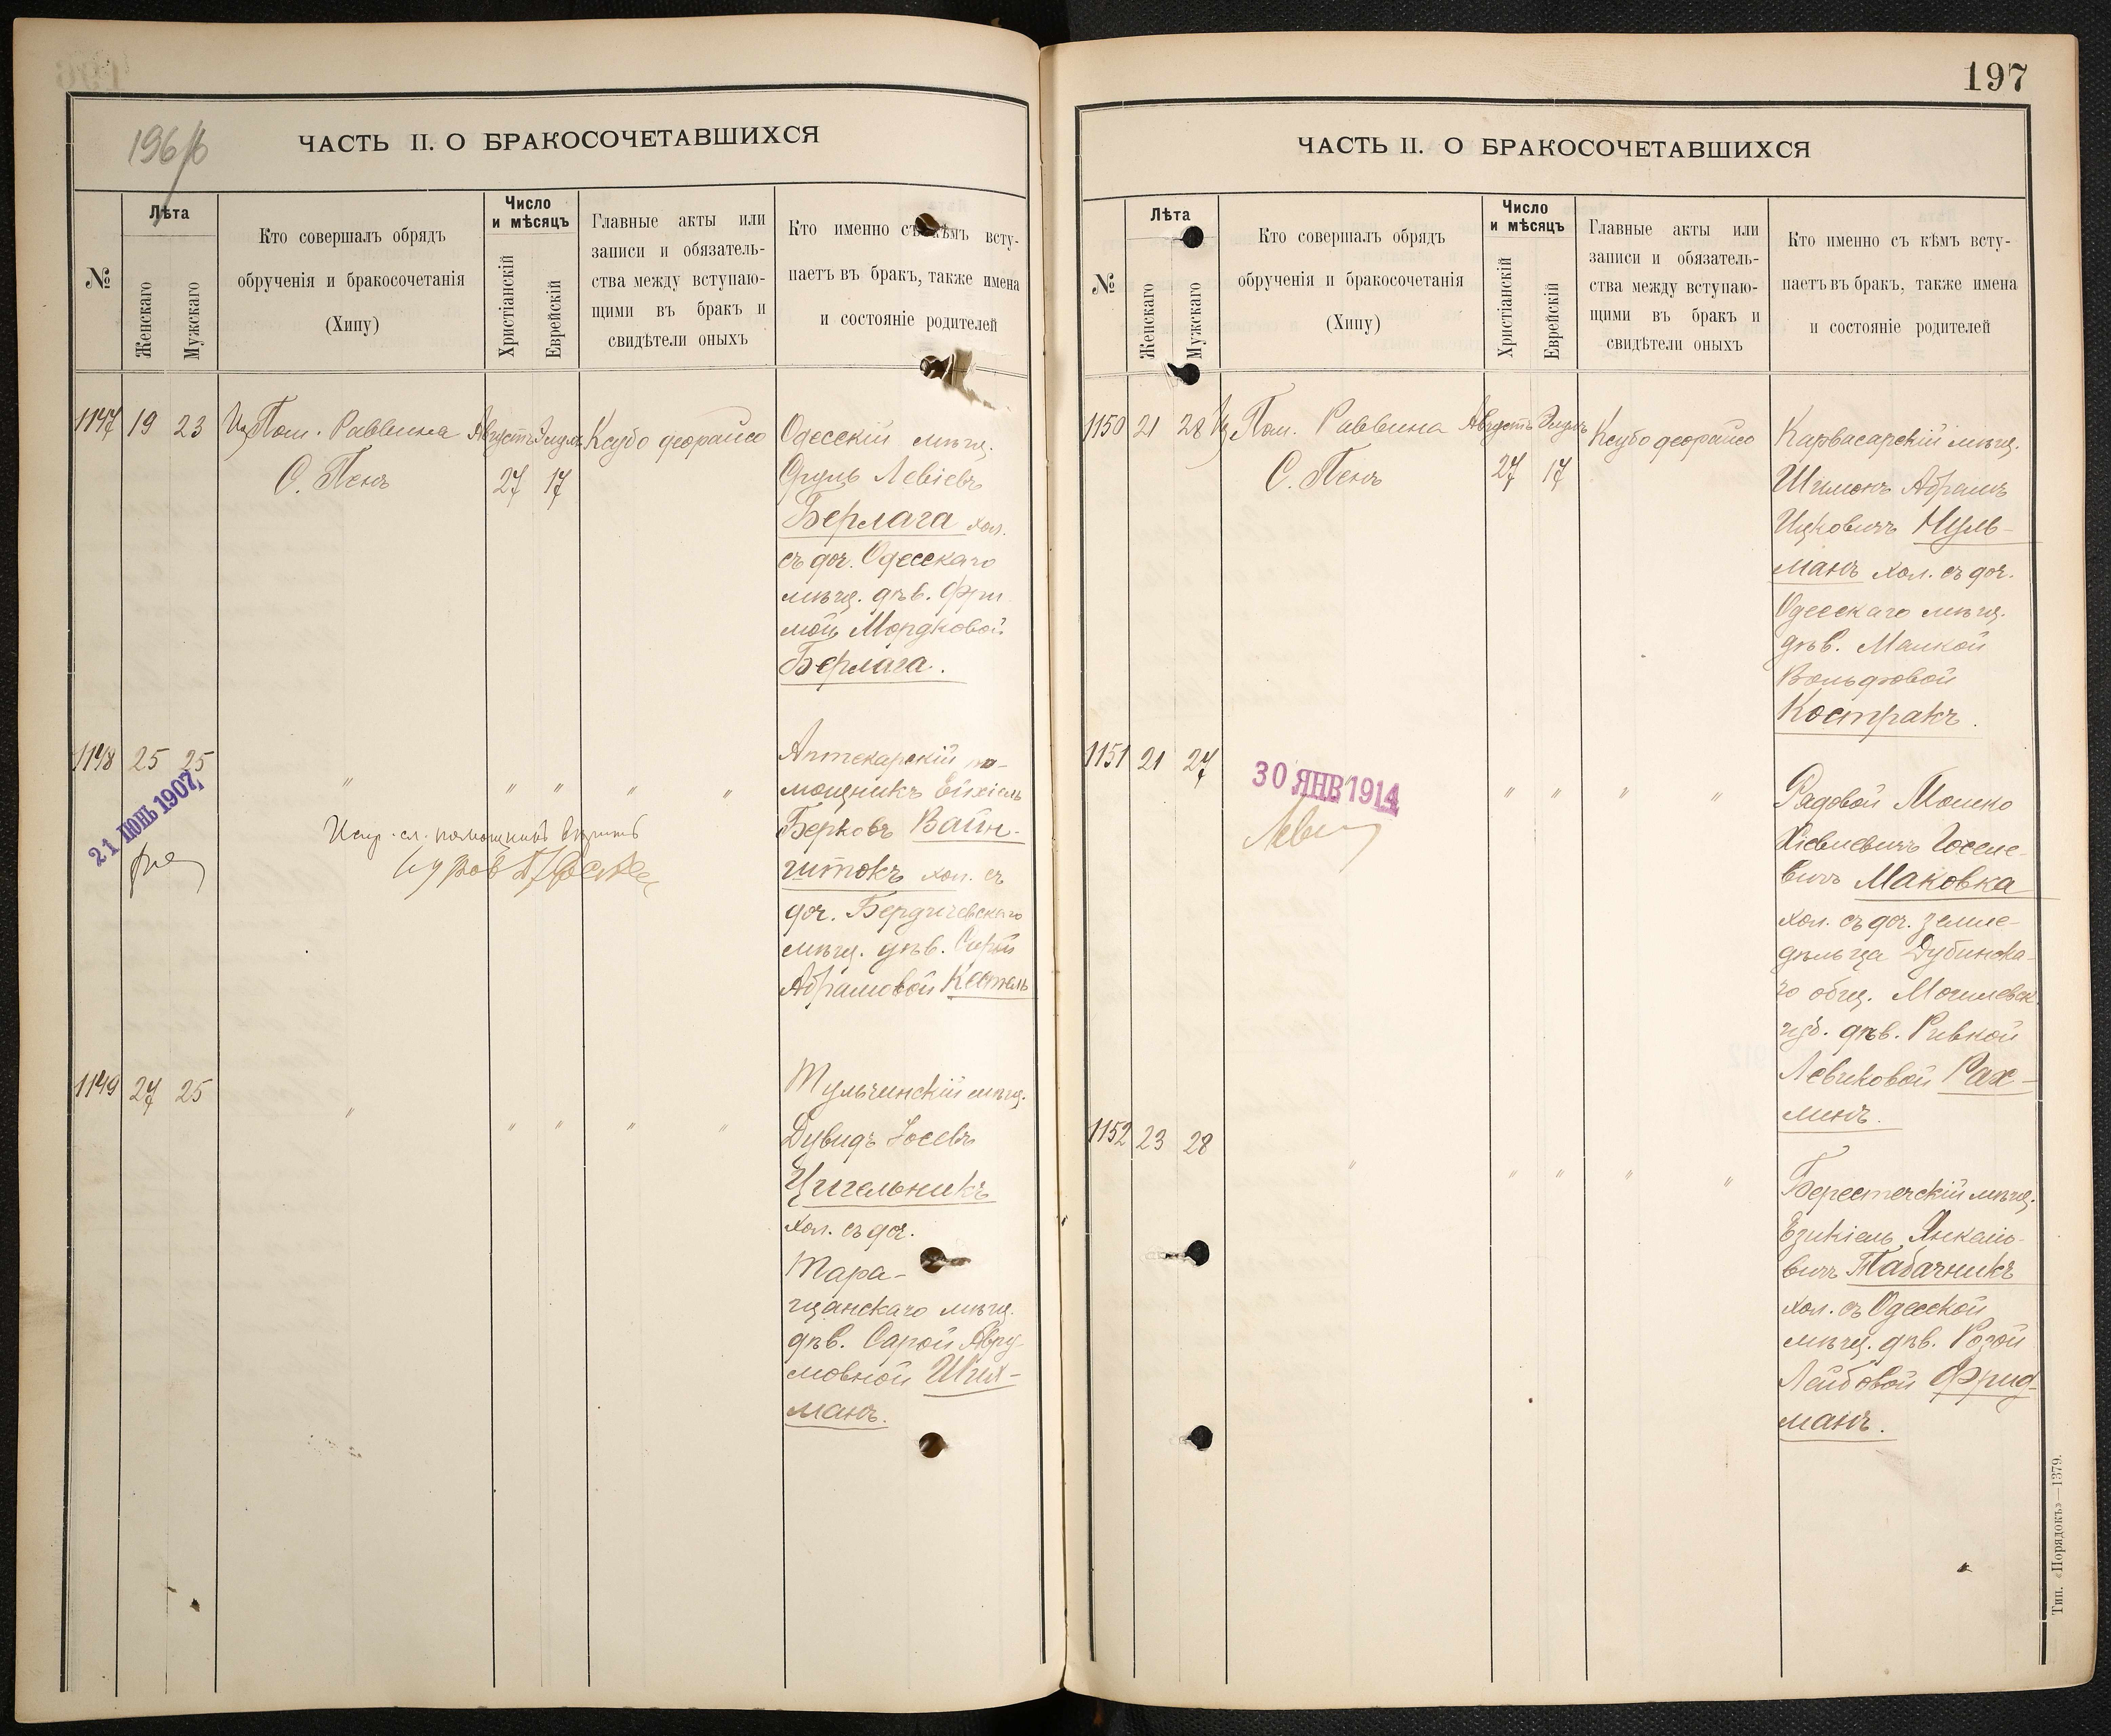 196/б
ЧАСТЬ II. О БРАКОСОЧЕТАВШИХСЯ
№
Лѣта
Женскаго
Мужскаго
Кто совершалъ обрядъ
обрученія и бракосочетанія
(Хипу)
Число
и мѣсяцъ
Христіанскій
Еврейскій
Главные акты или
записи и обязатель-
ства между вступаю-
щими въ бракъ и
свидѣтели оныхъ
Кто именно съ кѣмъ всту-
паетъ въ бракъ, также имена
и состояніе родителей
1147 19 23 Пом. Раввина Августъ Элулъ Ксубо деорайсо
С. Пенъ 27 17
Одесскій мѣщ.
Сруль Левіевъ
Берлага хол.
съ доч. Одесскаго
мѣщ. дѣв. Фри
мой Мордковой
Берлага.
1148 25 25 " " " " "
21 ІЮНЬ 1907
Испр. сл. помощникъ вѣрить
Аптекарскій по-
мощникъ Ейхіель
Берковъ Вайн-
штокъ хол. съ
доч. Бердичевскаго
мѣщ. дѣв.
Абрамовой Кестель
1149 27 25 " " " " "
Тульчинскій мѣщ.
Дувидъ Іосевъ
Цигельникъ
хол. съ доч.
Тара-
щанскаго мѣщ.
дѣв. Сарой Авру-
мовной Ших-
манъ.
197
ЧАСТЬ II. О БРАКОСОЧЕТАВШИХСЯ
№
Лѣта
Женскаго
Мужскаго
Кто совершалъ обрядъ
обрученія и бракосочетанія
(Хипу)
Число
и мѣсяцъ
Христіанскій
Еврейскій
Главные акты или
записи и обязатель-
ства между вступаю-
щими въ бракъ и
свидѣтели оныхъ
Кто именно съ кѣмъ всту-
паетъ въ бракъ, также имена
и состояніе родителей
1150 21 28 Пом. Раввина Августъ Элулъ Ксубо деорайсо
С. Пенъ 27 17
Карвасарскій мѣщ.
Шимонъ Абрамъ
Ицковичъ Нуль-
манъ хол. съ доч.
Одесскаго мѣщ.
дѣв. Малкой
Вольфовой
Костракъ.
1151 21 27 " " " "
30 ЯНВ 1914
Рядовой Мошко
Хіевиевичъ Госеле-
вичъ Маковка
хол. съ доч. земле-
дѣльца Дубинска-
го общ. Могилевск.
губ. дѣв. Ривкой
Левиковой Рах-
линъ.
1152 23 28 " " " " "
Берестечскій мѣщ.
Езикіель Янкелю-
вичъ Табачникъ
хол. съ Одесской
мѣщ. дѣв. Розой
Лейбовой Фрид-
манъ.
Тип. «Порядокъ»—1379.